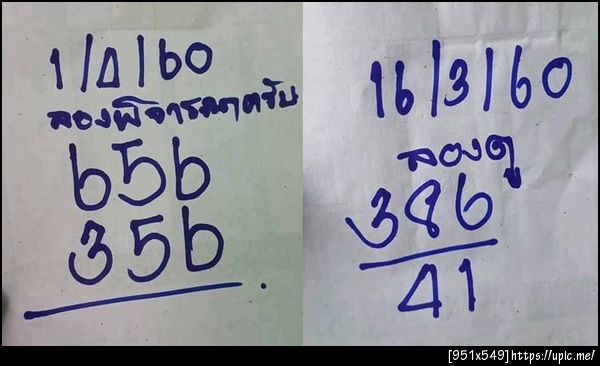 1/4/60
ลองพิจารณาครับ
656
356
16/3/60
ลองดู
386
41
[951x549]https://upic.me/